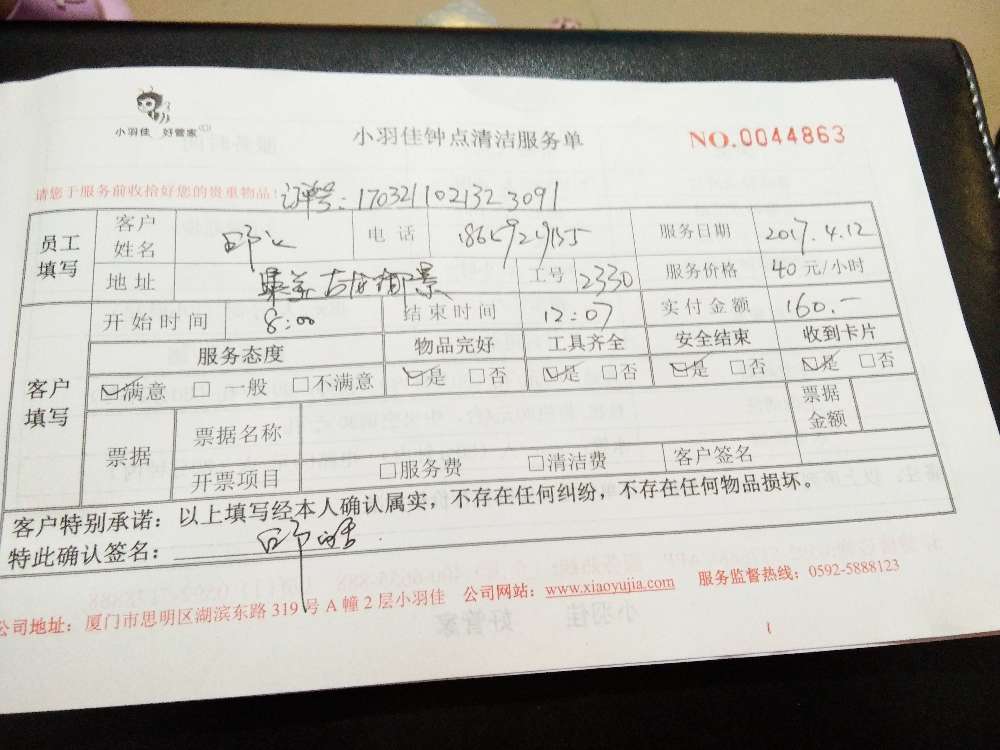 小羽佳 好管家
小羽佳钟点清洁服务单
NO.0044863
请您于服务前收拾好您的贵重物品!
订单号:170321102132 3091
员工填写 客户姓名 电话 服务日期 2017.4.12
地址 工号 2330 服务价格 40元/小时
开始时间 8:00 结束时间 12:07 实付金额 160.-
客户填写 服务态度 物品完好 工具齐全 安全结束 收到卡片
☑满意 □一般 □不满意 ☑是 □否 ☑是 □否 ☑是 □否 ☑是 □否
票据 票据名称 票据金额
开票项目 □服务费 □清洁费 客户签名
客户特别承诺:以上填写经本人确认属实,不存在任何纠纷,不存在任何物品损坏。
特此确认签名:
公司地址:厦门市思明区湖滨东路319号A幢2层小羽佳 公司网站:www.xiaoyujia.com 服务监督热线:0592-5888123